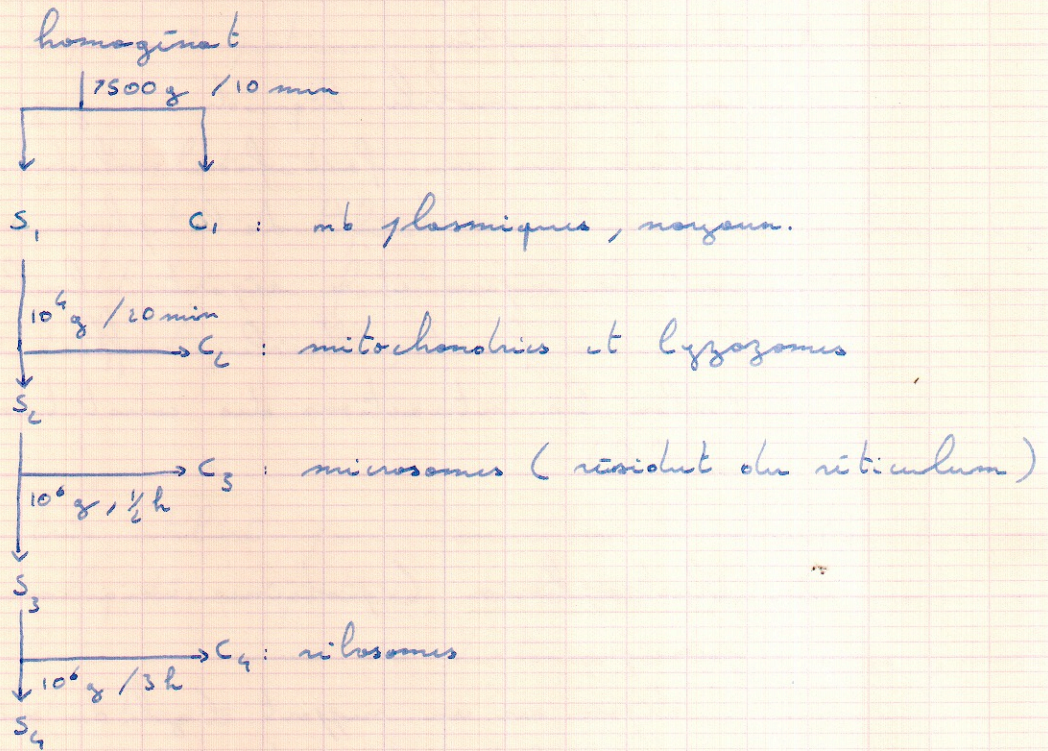 homogénat
7500g /10 min
S₁ C₁ : mb plasmiques, noyaux.
10⁴g /20min
C₂ : mitochondries et lyzozomes
S₂
C₃ : microsomes ( résidut du réticulum )
10⁶g, ½h
S₃
C₄ : ribosomes
10⁶g /3h
S₄